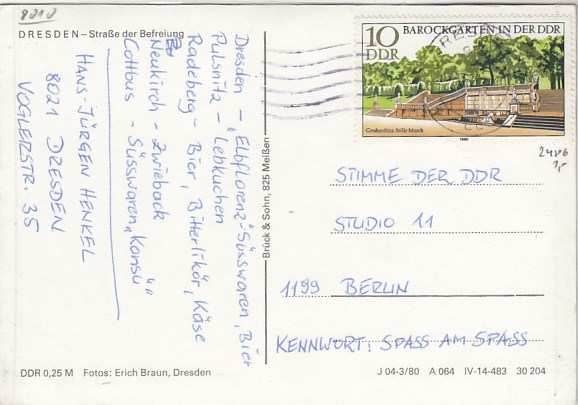 8010
DRESDEN – Straße der Befreiung
Dresden – „Elbflorenz"-Süsswaren, Bier
Pulsnitz – Lebkuchen
Radeberg – Bier, Bitterlikör, Käse
Neukirch – Zwieback
Cottbus – Süsswaren „Konsü"
HANS-JÜRGEN HENKEL
8021 DRESDEN
VOGLERSTR. 35
Brück & Sohn, 825 Meißen
BAROCKGÄRTEN IN DER DDR
10
DDR
Großsedlitz, Stille Musik
1980
2486
1,-
STIMME DER DDR
STUDIO 11
1199 BERLIN
KENNWORT: SPASS AM SPASS
DDR 0,25 M Fotos: Erich Braun, Dresden
J 04-3/80 A 064 IV-14-483 30 204